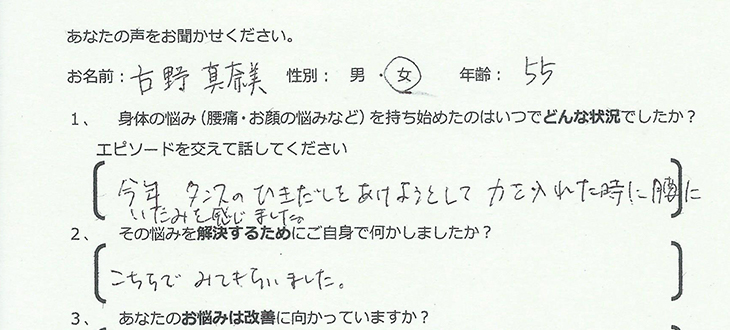 あなたの声をお聞かせください。
お名前：古野 真奈美 性別： 男 ・ 女 年齢： 55
1、 身体の悩み（腰痛・お顔の悩みなど）を持ち始めたのはいつでどんな状況でしたか？
エピソードを交えて話してください
今年 タンスのひきだしをあけようとして 力を入れた時に腰に
いたみを感じました。
2、 その悩みを解決するためにご自身で何かしましたか？
こちらで みてもらいました。
3、 あなたのお悩みは改善に向かっていますか？